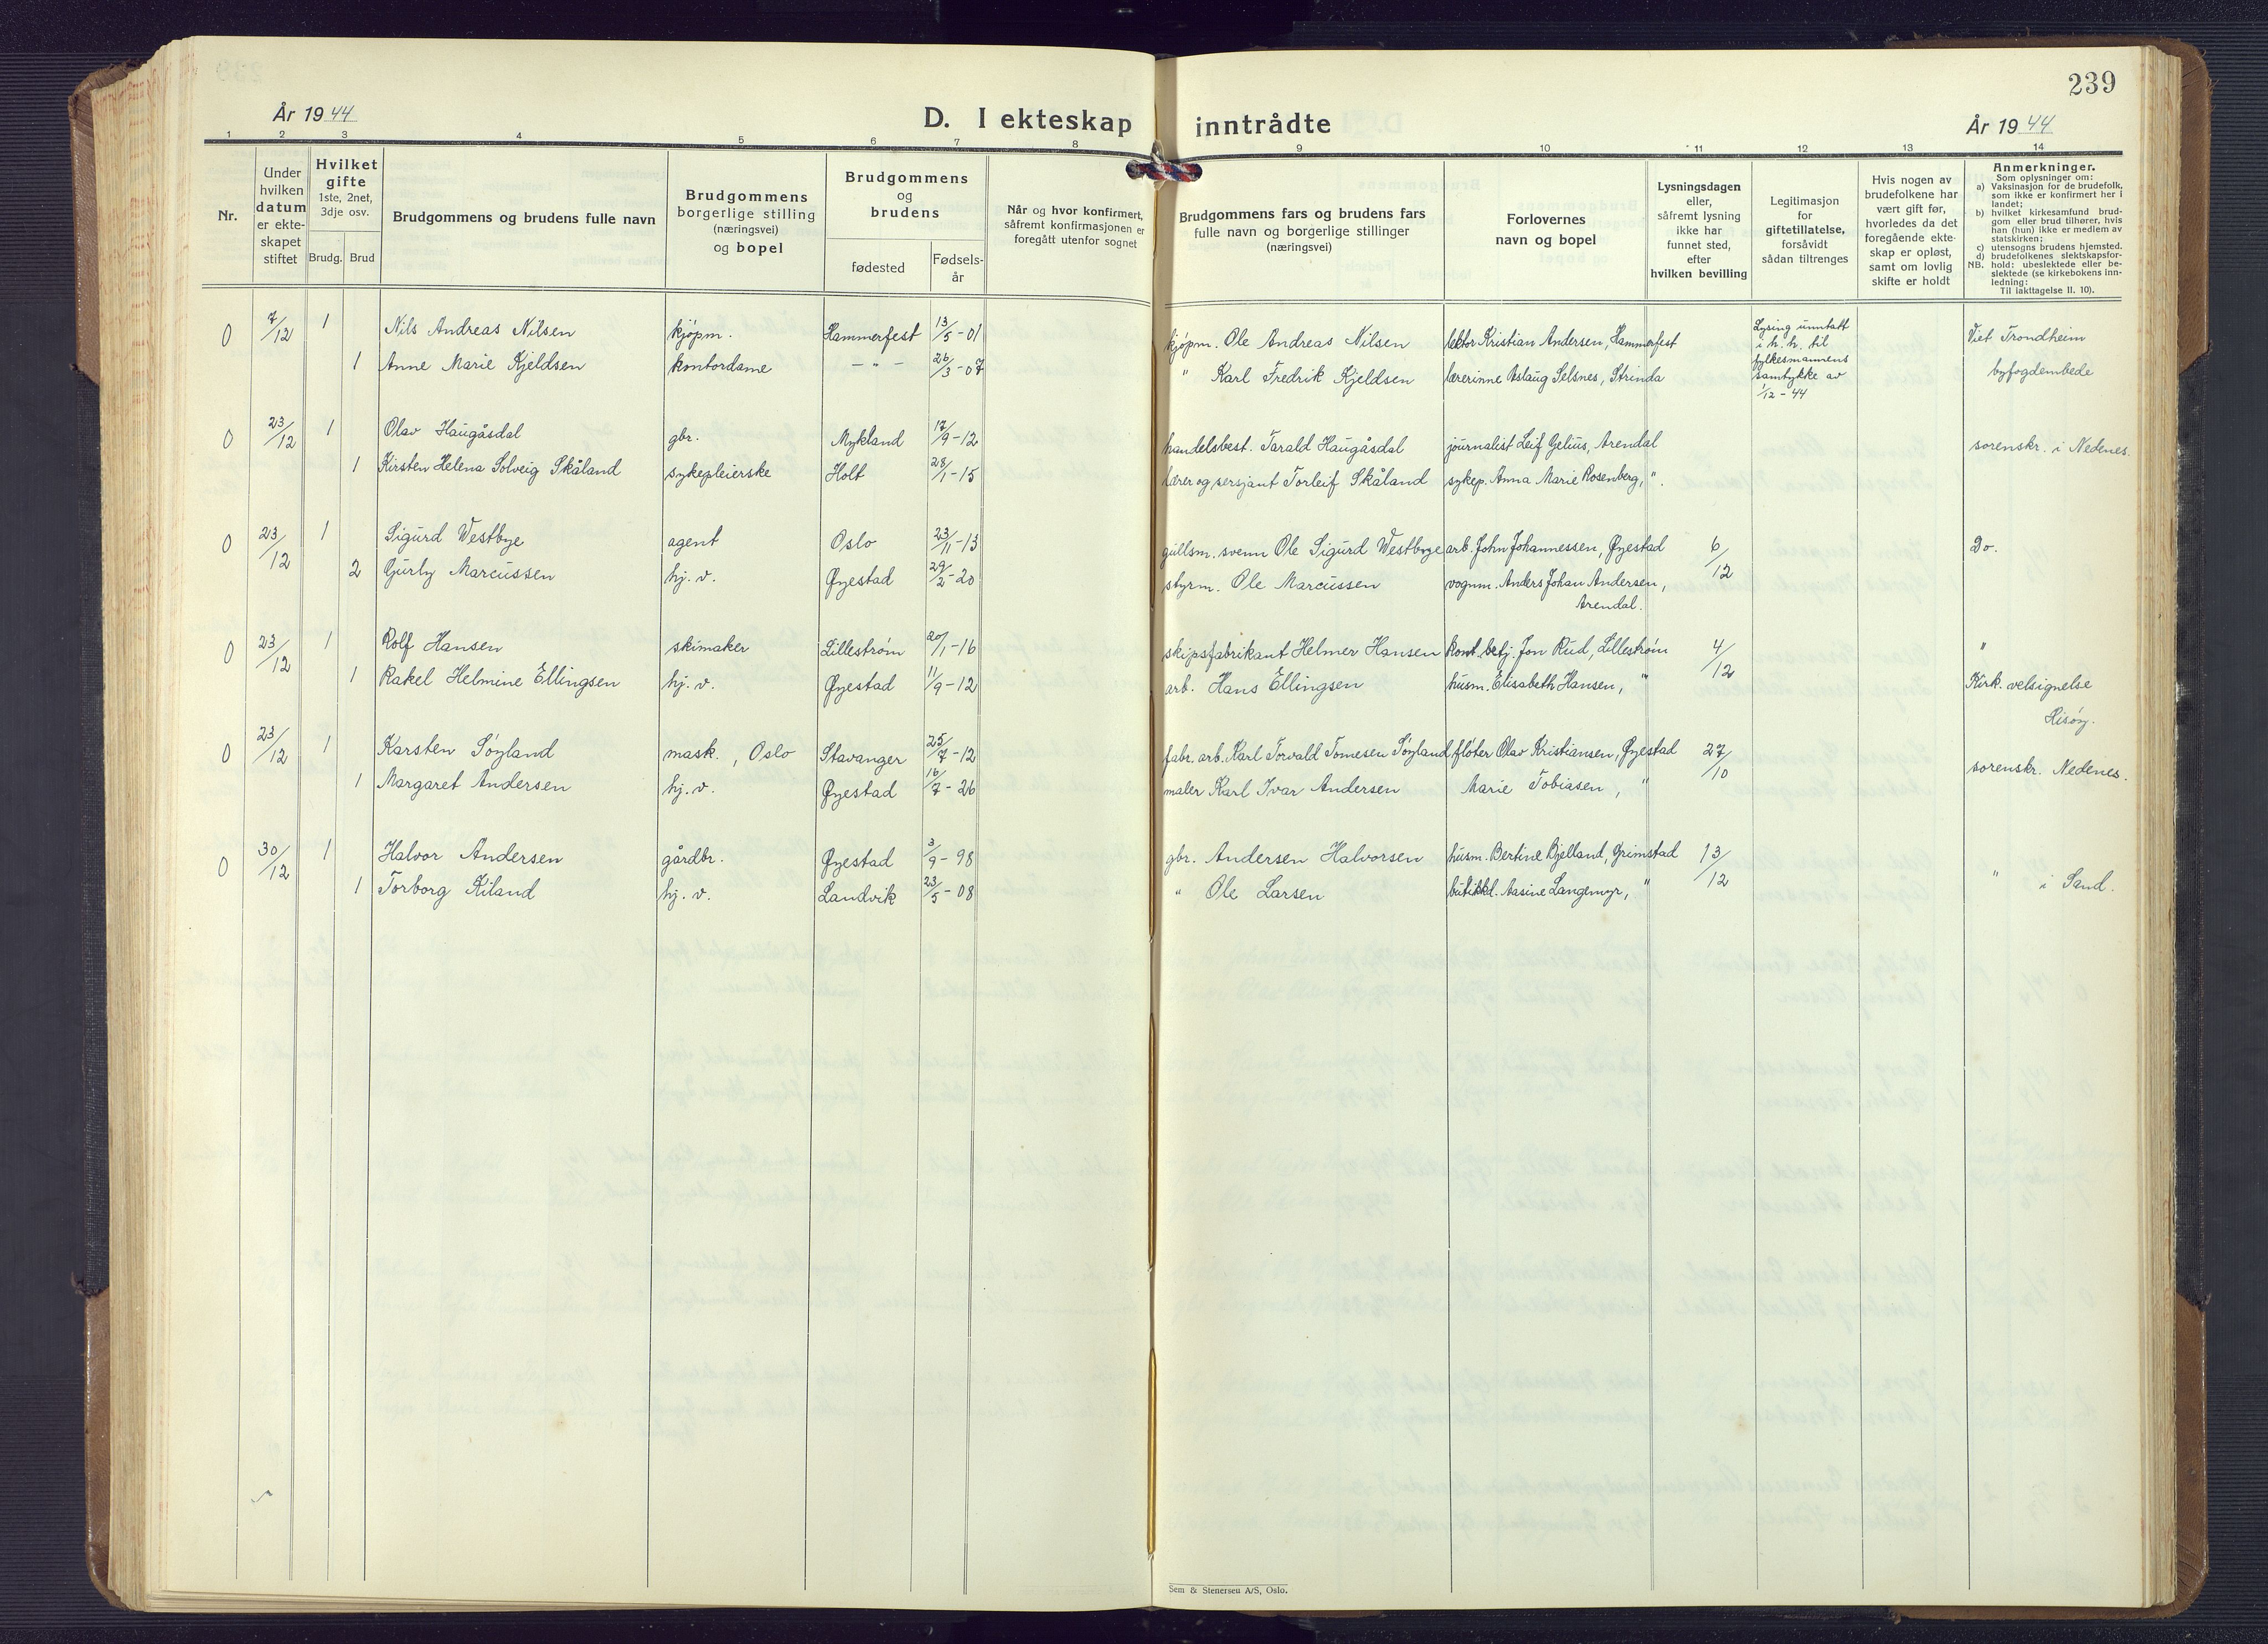 239
År 1944
D. I ekteskap inntrådte
År 1944
1 2 3 4 5 6 7 8 9 10 11 12 13 14
Nr.
Under
hvilken
datum
er ekte-
skapet
stiftet
Hvilket
gifte
1ste, 2net,
3dje osv.
Brudg. Brud
Brudgommens og brudens fulle navn
Brudgommens
borgerlige stilling
(næringsvei)
og bopel
Brudgommens
og
brudens
fødested
Fødsels-
år
Når og hvor konfirmert,
såfremt konfirmasjonen er
foregått utenfor sognet
Brudgommens fars og brudens fars
fulle navn og borgerlige stillinger
(næringsvei)
Forlovernes
navn og bopel
Lysningsdagen
eller,
såfremt lysning
ikke har
funnet sted,
efter
hvilken bevilling
Legitimasjon
for
giftetillatelse,
forsåvidt
sådan tiltrenges
Hvis nogen av
brudefolkene har
vært gift før,
hvorledes da det
foregående ekte-
skap er opløst,
samt om lovlig
skifte er holdt
Anmerkninger.
Som oplysninger om:
a) Vaksinasjon for de brudefolk,
som ikke er konfirmert her i
landet;
b) hvilket kirkesamfund brud-
gom eller brud tilhører, hvis
han (hun) ikke er medlem av
statskirken;
c) utensogns brudens hjemsted.
d) brudefolkenes slektskapsfor-
NB. hold: ubeslektede eller be-
slektede (se kirkebokens inn-
ledning:
Til iakttagelse II. 10).
0 7/12 1 Nils Andreas Nilsen kjøpm. Hammerfest 13/5-01 kjøpm. Ole Andreas Nilsen lektor Kristian Andersen, Hammerfest Lysing unntatt i h. h. til Viet Trondheim
1 Anne Marie Kjeldsen kontordame — " — 26/3-07 " Karl Fredrik Kjeldsen lærerinne Aslaug Selsnes, Strinda fylkesmannens samtykke av 1/12-44 byfogdembede
0 23/12 1 Olav Haugåsdal gbr. Mykland 17/9-12 handelsbest. Tarald Haugåsdal journalist Leif Gelius, Arendal sorenskr. i Nedenes.
1 Kirsten Helena Solveig Skåland sykepleierske Holt 28/1-15 lærer og sersjant Torleif Skåland sykep. Anna Marie Rosenberg, ".
0 23/12 1 Sigurd Westbye agent Oslo 23/11-13 gullsm. svenn Ole Sigurd Westbye arb. John Johannessen, Øyestad 6/12 Do.
2 Gurly Marcussen hj. v. Øyestad 29/2-20 styrm. Ole Marcussen vognm. Anders Johan Andersen,
Arendal.
0 23/12 1 Rolf Hansen skimaker Lillestrøm 20/1-16 skipsfabrikant Helmer Hansen kont. betj. Jon Rud, Lillestrøm 4/12 "
1 Rakel Helmine Ellingsen hj. v. Øyestad 11/9-12 arb. Hans Ellingsen husm. Elisabeth Hansen, " Kirk. velsignelse
Hisøy.
0 23/12 1 Karsten Søyland mask., Oslo Stavanger 25/7-12 fabr. arb. Karl Torvald Tomesen Søyland fløter Olav Kristiansen, Øyestad 27/10 sorenskr. Nedenes.
1 Margaret Andersen hj. v. Øyestad 16/7-26 maler Karl Ivar Andersen Marie Tobiasen, "
0 30/12 1 Halvor Andersen gårdbr. Øyestad 3/9-98 gbr. Andersen Halvorsen husm. Bertine Bjelland, Grimstad 13/12
1 Torborg Kiland hj. v. Landvik 23/5-08 " Ole Larsen butikkd. Aasine Langemyr, " " i Sand.
Sem & Stenersen A/S, Oslo.